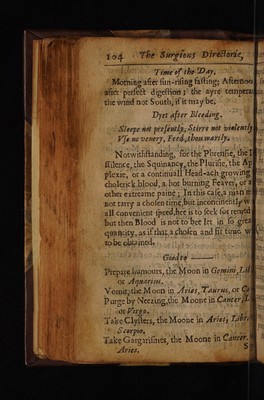 104 The Surgions Directorie,
Time of the Day.
Morning after sun-rising fasting; Afternoon
after perfect digestion; the ayre tempera
the wind not South, if it may be.
Dyet after Bleeding.
Sleepe not presently, Stirre not violently
Vse no venery, Feed, thou warily.
Notwithstanding, for the Phrensie, the
silence, the Squinancy, the Plurisie, the Ap
plexie, or a continuall Head-ach growing
cholerick blood, a hot burning Feaver, or a
other extreame paine; In this case, a man m
not tarry a chosen time, but incontinently w
all convenient speed, hee is to seek for remed
but then Blood is not to bee let in so grea
quantity, as if that a chosen and fit time w
to be obtained.
Good to
Prepare humours, the Moon in Gemini, Lib
or Aquarius.
Vomit, the Moon in Aries, Taurus, or Ca
Purge by Neezing, the Moone in Cancer, L
or Virgo.
Take Clysters, the Moone in Aries, Libra
Scorpio.
Take Gargarismes, the Moone in Cancer.
Aries. S